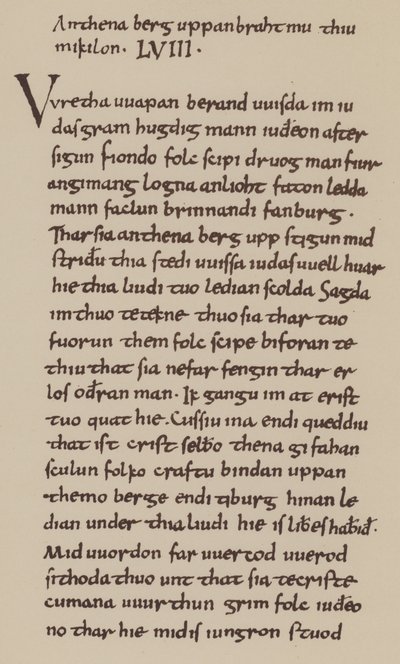 An thena berg uppan braht mu thiu
mikilon. LVIII.
Vvretha uuapan berand uuisda im iu
das gram hugdig mann iudeon after
sigun fiondo folc scipi druog man fiur
an gimang logna an lioht faton ledda
mann faclun brinnandi fan burg.
Thar sia an thena berg upp stigun mid
stridu thia stedi uuissa iudas uuell huar
hie thia liudi tuo ledian scolda Sagda
im thuo te tekne thuo sia thar tuo
fuorun them folc scipe biforan te
thiu that sia ne far fengin thar er
los oðran man. Ik gangu im at erist
tuo quat hie. Cussiu ina endi queddiu
that ist crist selbo thena gi fahan
sculun folko craftu bindan uppan
themo berge endi te burg hinan le
dian under thia liudi hie is libes habid.
Mid uuordon far uuercod uuerod
sithoda thuo unt that sia te criste
cumana uuurthun grim folc iudeo
no thar hie mid is iungron stuod